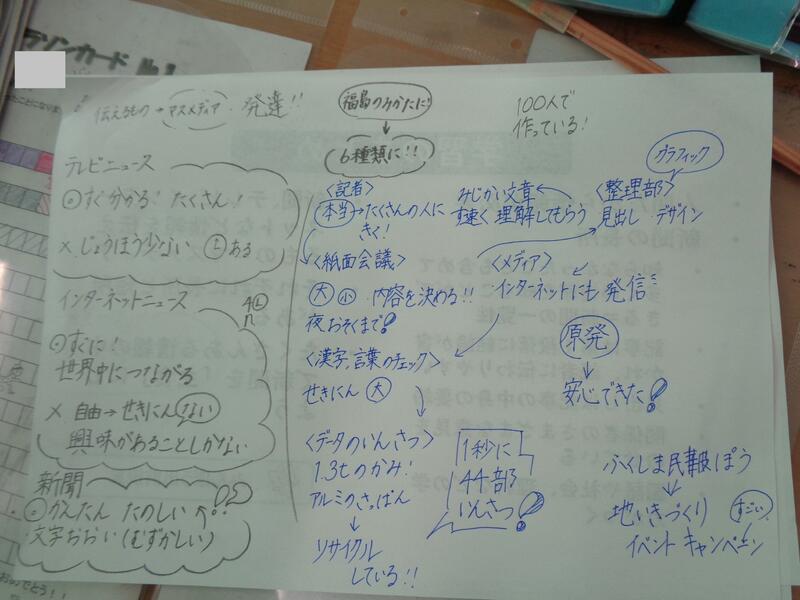 ラソンカード No.1
伝えるもの→マスメディア・発達!!
テレビニュース
⊙すぐ分かる! たくさん!
× じょうほう少ない Ⓛある
インターネットニュース
⊙すぐに!
世界中につながる
× 自由→せきにんない
興味があることしかない
新聞
かんたん たのしい
文字おおい(むずかしい)
福島のみかたに!
↓
6種類に!!
〈記者〉
本当→たくさんの人に
きく!
〈紙面会議〉
大 小 内容を決める!!
夜おそくまで!
〈漢字、言葉のチェック〉
せきにん 大
〈データのいんさつ〉
1.3tのかみ!
アルミのさっぱん
↓
リサイクル
している!!
100人で
作っている!
グラフィック
〈整理部〉
見出し デザイン
みじかい文章
す速く 理解してもらう
〈メディア〉
インターネットにも 発信
原発
↓
安心できた!
1秒に
44部
いんさつ!
ふくしま民報ぽう
↓
地いきづくり すごい
イベント キャンペーン